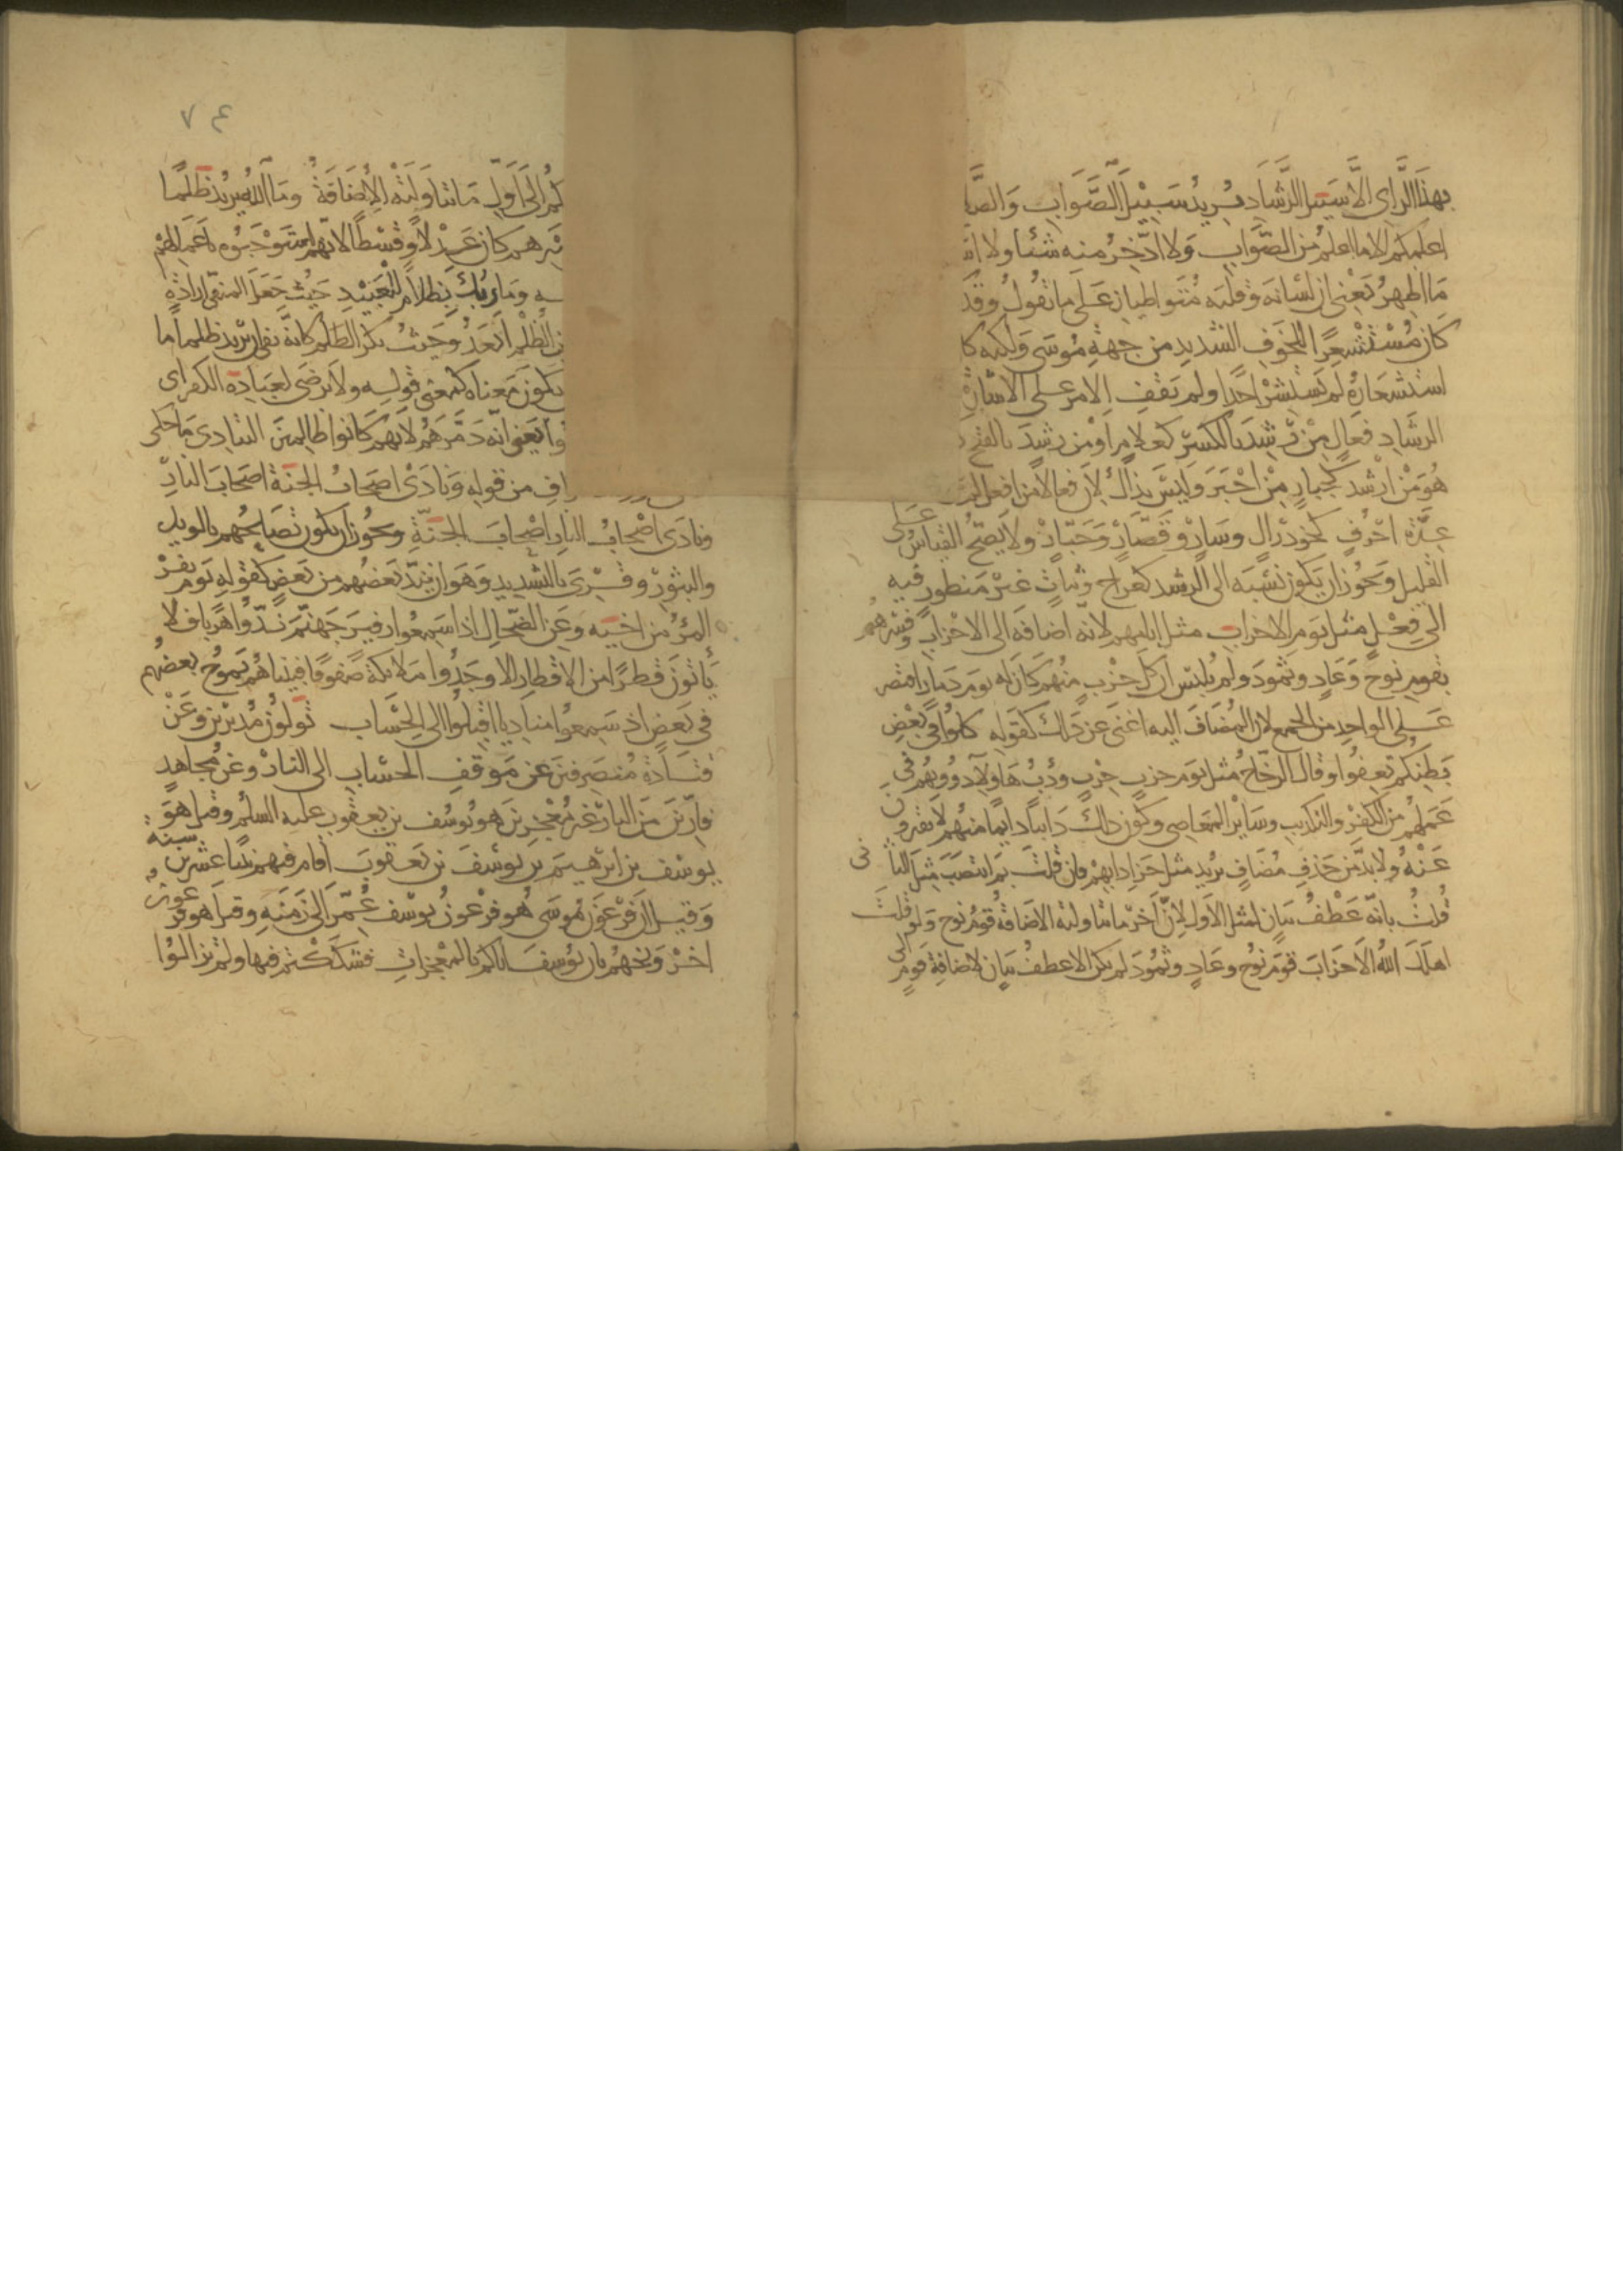 بهذا الراى الا سبيل الرشاد يريد سبيل الصواب والصلا
اعلمكم الا ما اعلم من الصواب ولا ادخر منه شيئا ولا
ما اظهر يعنى ان لسانه وقلبه متواطيان على ما يقول وقد
كان مستشعرا للخوف الشديد من جهة موسى ولكنه كا
استشعاره لم يستشر احدا ولم يقف الامر على الاشارة
الرشاد فعال من رشد بالكسر كعلام او من رشد بالفتح
هو من ارشد كجبار من اجبر وليس بذاك لان فعالا من افعل لم
عدة احرف نحو دراك وسار وقصار وجبار ولا يصح القياس على
القليل ويجوز ان يكون نسبه الى الرشد كعواج وبتات غير منظور فيه
الى فعل مثل يوم الاحزاب مثل ايامهم لانه اضافه الى الاحزاب وفسرهم
بقوم نوح وعاد وثمود ولم يلبس ان كل حزب منهم كان له يوم دمار اقتصر
على الواحد من الجمع لان المضاف اليه اغنى عن ذلك كقوله كلوا فى بعض
بطنكم تعفوا وقال الزجاج مثل يوم حزب حزب ودئب هاولاء دووبهم فى
عملهم من الكفر والتكذيب وساير المعاصى وكون ذلك دايبا دايما منهم لا يفترون
عنه ولا بد من حذف مضاف يريد مثل جزا دابهم فان قلت بم انتصب مثل الثانى
قلت بانه عطف بيان لمثل الاول لان اخر ما تناولته الاضافة قوم نوح ولو قلت
اهلك الله الاحزاب قوم نوح وعاد وثمود لم يكن الا عطف بيان لاضافة قوم الى
٧٤
الى اول ما تناولته الاضافة وما الله يريد ظلما
كان عدلا وقسطا لانهم استوجبوه باعمالهم
وما ربك بظلام للعبيد حيث جعل المنفى ارادة
الظلم ابعد وحيث نكر الظلم كانه نفى ان يريد ظلما ما
يكون معناه كمعنى قوله ولا يرضى لعباده الكفر اى
يعنى انه دمرهم لانهم كانوا ظالمين التنادى ما حكى
من قوله ونادى اصحاب الجنة اصحاب النار
ونادى اصحاب النار اصحاب الجنة ويجوز ان يكون تصايحهم بالويل
والثبور وقرى بالتشديد وهو ان يند بعضهم من بعض كقوله يوم يفر
المرؤ من اخيه وعن الضحاك اذا سمعوا زفير جهنم ندوا هربا فلا
ياتون قطرا من الاقطار الا وجدوا ملايكة صفوفا فبيناهم يموج بعضهم
فى بعض اذ سمعوا مناديا اقبلوا الى الحساب تولون مدبرين وعن
قتادة منصرفين عن موقف الحساب الى النار وعن مجاهد
فارين من النار غير معجزين هو يوسف بن يعقوب عليه السلم وقيل هو
يوسف بن ابرهيم بن يوسف بن يعقوب اقام فيهم نبيا عشرين سنه
وقيل ان فرعون موسى هو فرعون يوسف عمر الى زمنه وقيل هو فرعون
اخر وبخهم بان يوسف اتاكم بالمعجزات فشككتم فيها ولم تزالوا